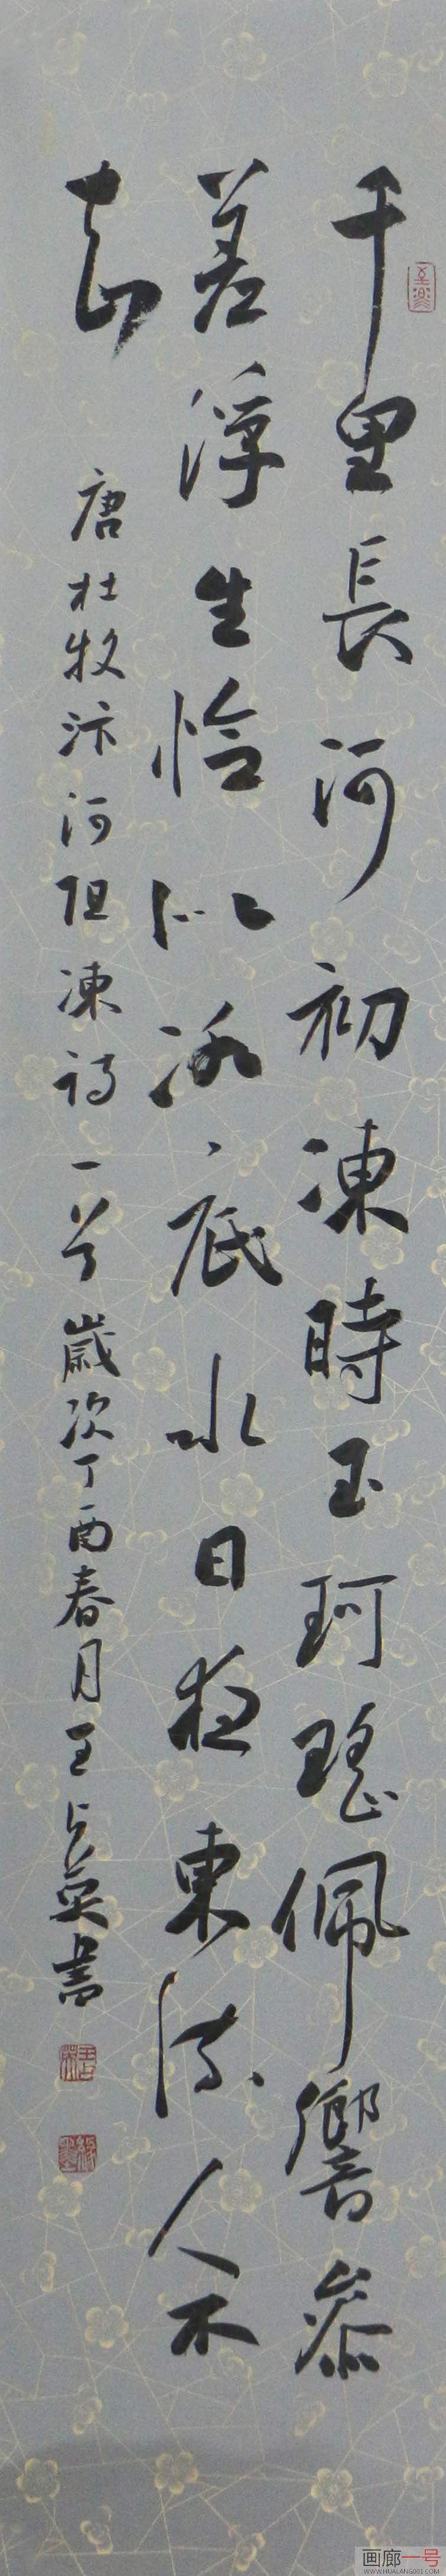 千里長河初凍時玉珂瑤佩響參
差浮生恰似冰底水日夜東流人不
知
唐杜牧汴河阻凍詩一首歲次丁酉春月王占英書
至樂
画廊一号
WWW.HUALANG001.COM